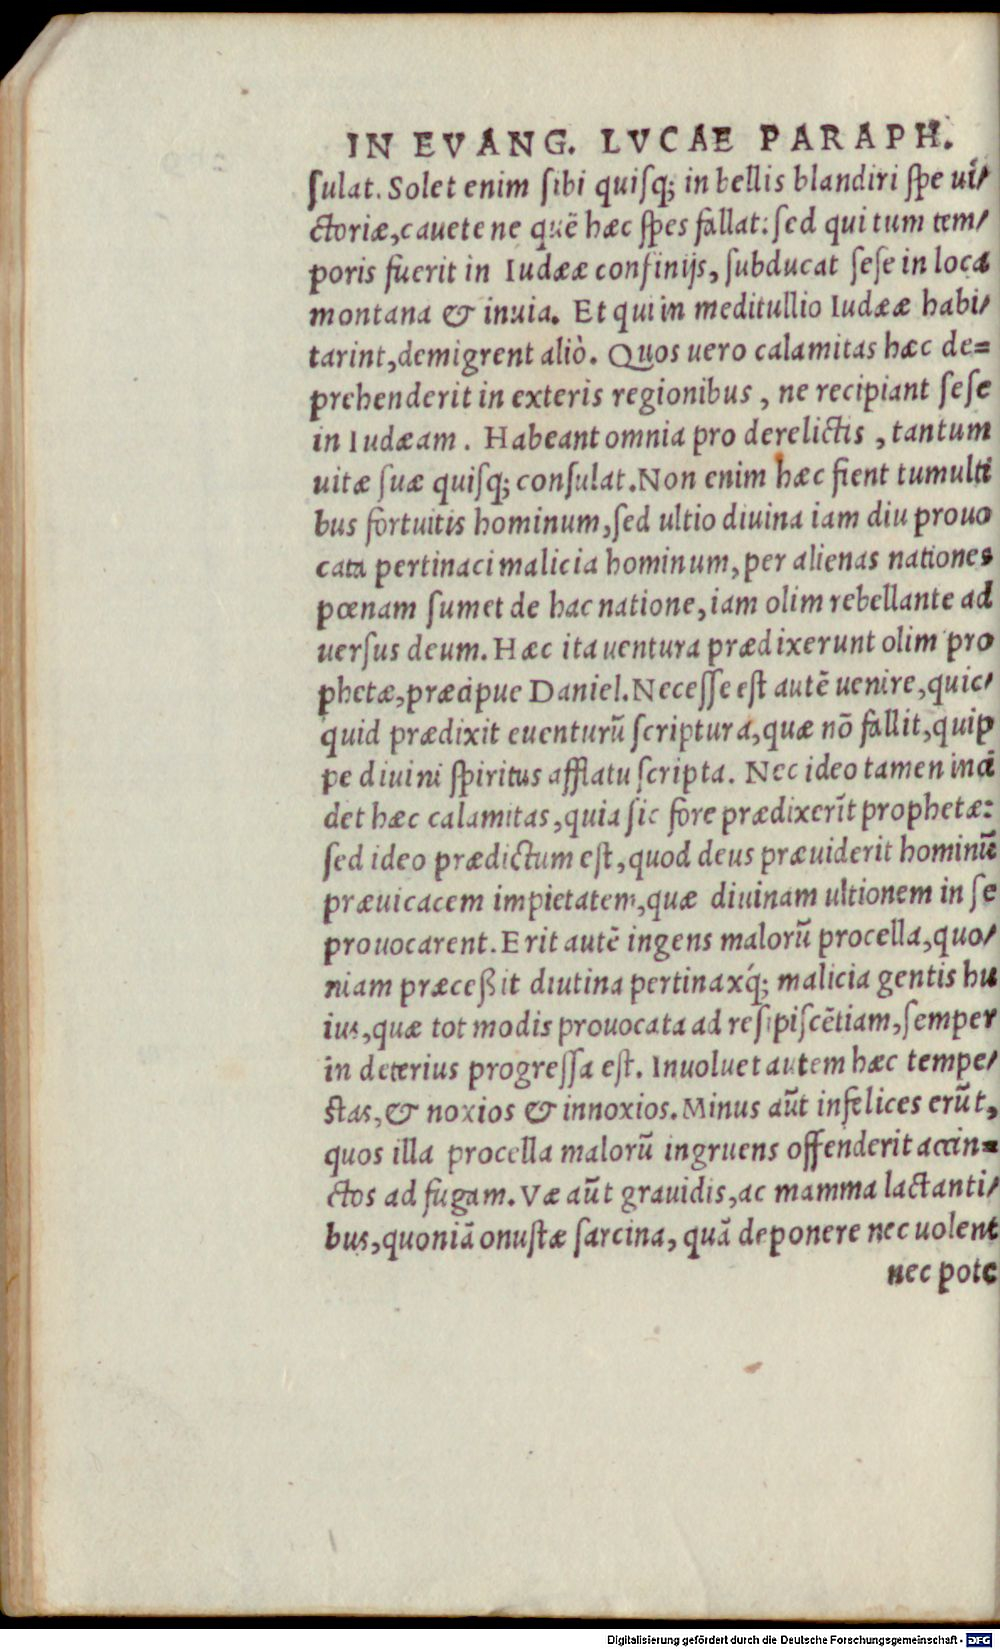 IN EVANG. LVCAE PARAPH.
ſulat. Solet enim ſibi quiſq; in bellis blandiri ſpe ui/
ctoriæ, cauete ne quẽ hæc ſpes fallat: ſed qui tum tem/
poris fuerit in Iudææ confinijs, ſubducat ſeſe in loca
montana & inuia. Et qui in meditullio Iudææ habi/
tarint, demigrent aliò. Quos uero calamitas hæc de=
prehenderit in exteris regionibus, ne recipiant ſeſe
in Iudæam. Habeant omnia pro derelictis, tantum
uitæ ſuæ quiſq; conſulat. Non enim hæc fient tumulti
bus fortuitis hominum, ſed ultio diuina iam diu prouo
cata pertinaci malicia hominum, per alienas nationes
pœnam ſumet de hac natione, iam olim rebellante ad
uerſus deum. Hæc ita uentura prædixerunt olim pro
phetæ, præcipue Daniel. Neceſſe eſt autẽ uenire, quic/
quid prædixit euenturũ ſcriptura, quæ nõ fallit, quip
pe diuini ſpiritus afflatu ſcripta. Nec ideo tamen inci
det hæc calamitas, quia ſic fore prædixerĩt prophetæ:
ſed ideo prædictum eſt, quod deus præuiderit hominũ
præuicacem impietatem, quæ diuinam ultionem in ſe
prouocarent. Erit autẽ ingens malorũ procella, quo/
niam præceßit diutina pertinaxq́; malicia gentis hu
ius, quæ tot modis prouocata ad reſipiſcẽtiam, ſemper
in deterius progreſſa eſt. Inuoluet autem hæc tempe/
ſtas, & noxios & innoxios. Minus aũt infelices erũt,
quos illa procella malorũ ingruens offenderit accin=
ctos ad fugam. Væ aũt grauidis, ac mamma lactanti/
bus, quoniã onuſtæ ſarcina, quã deponere nec uolent
nec pote
Digitalisierung gefördert durch die Deutsche Forschungsgemeinschaft - DFG